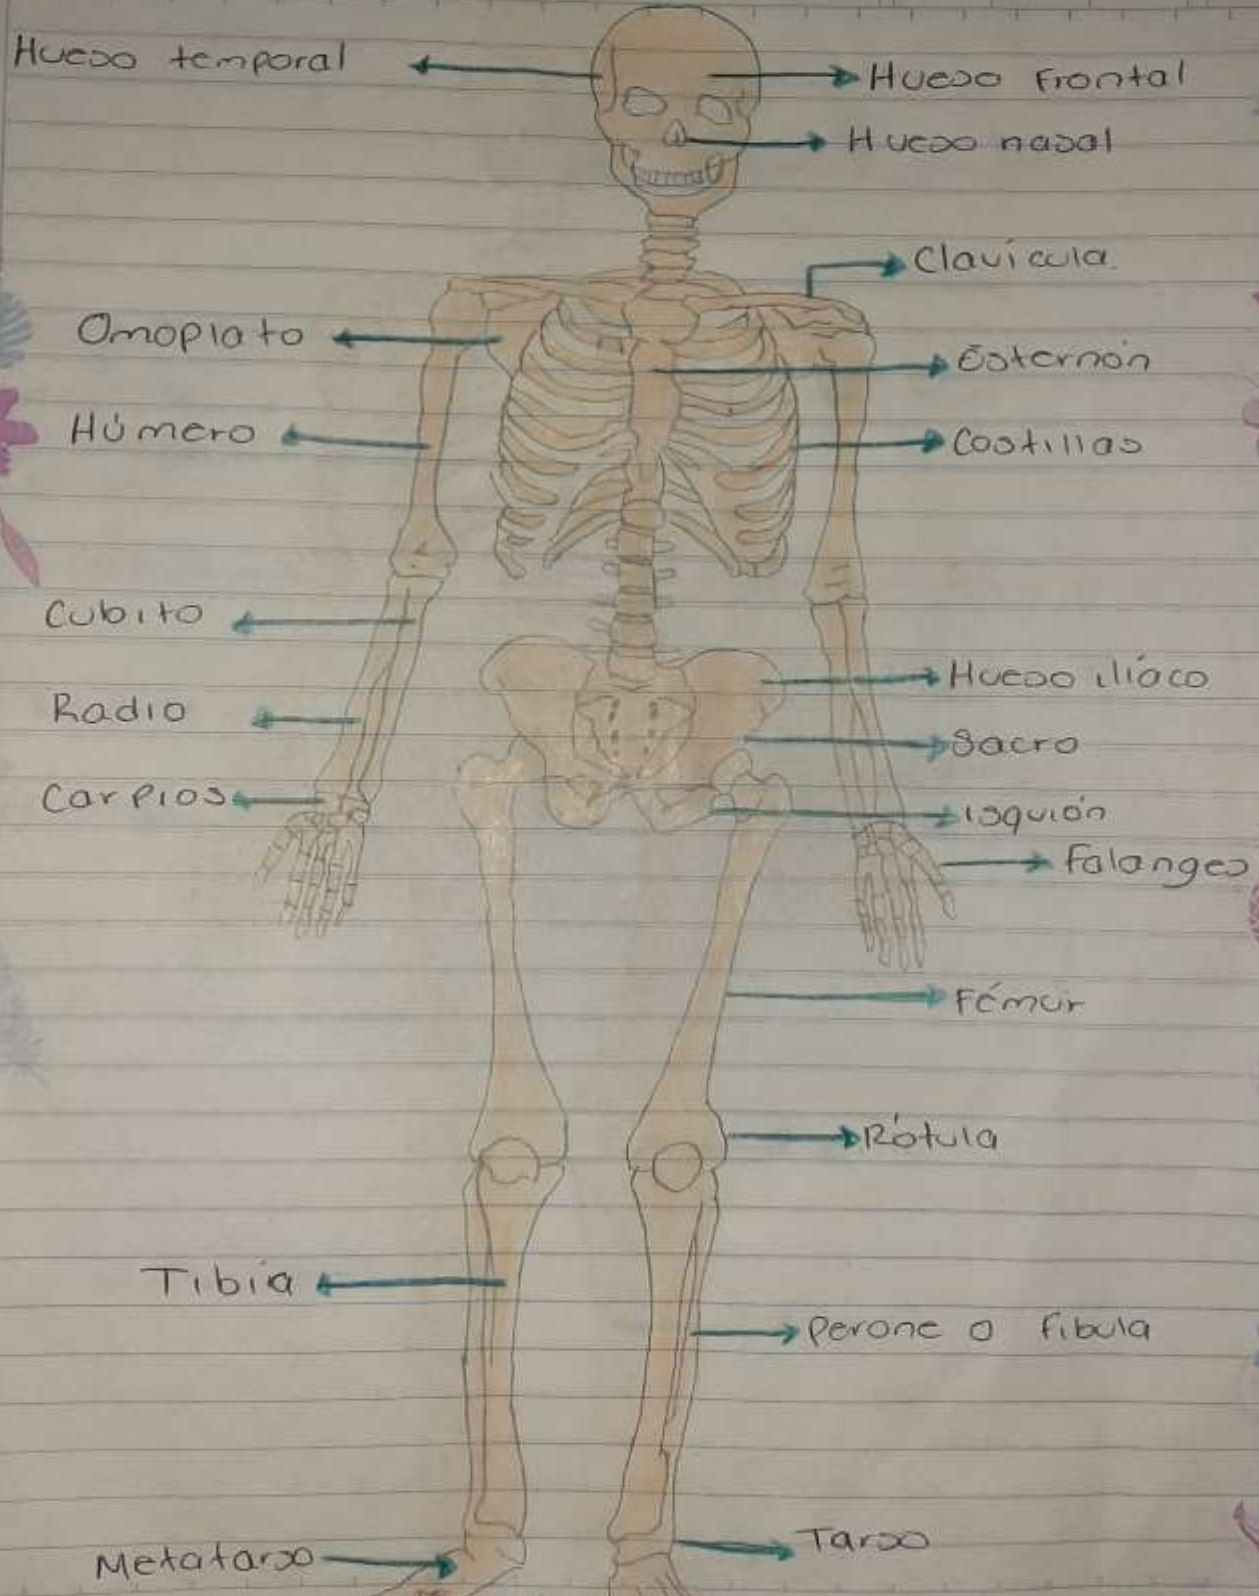 Hueso temporal
Hueso Frontal
Hueso nasal
Clavícula.
Omoplato
Esternón
Húmero
Costillas
Cubito
Hueso ilíaco
Radio
Sacro
Carpios
isquión
Falanges
Fémur
Rótula
Tibia
Perone o Fibula
Tarso
Metatarso